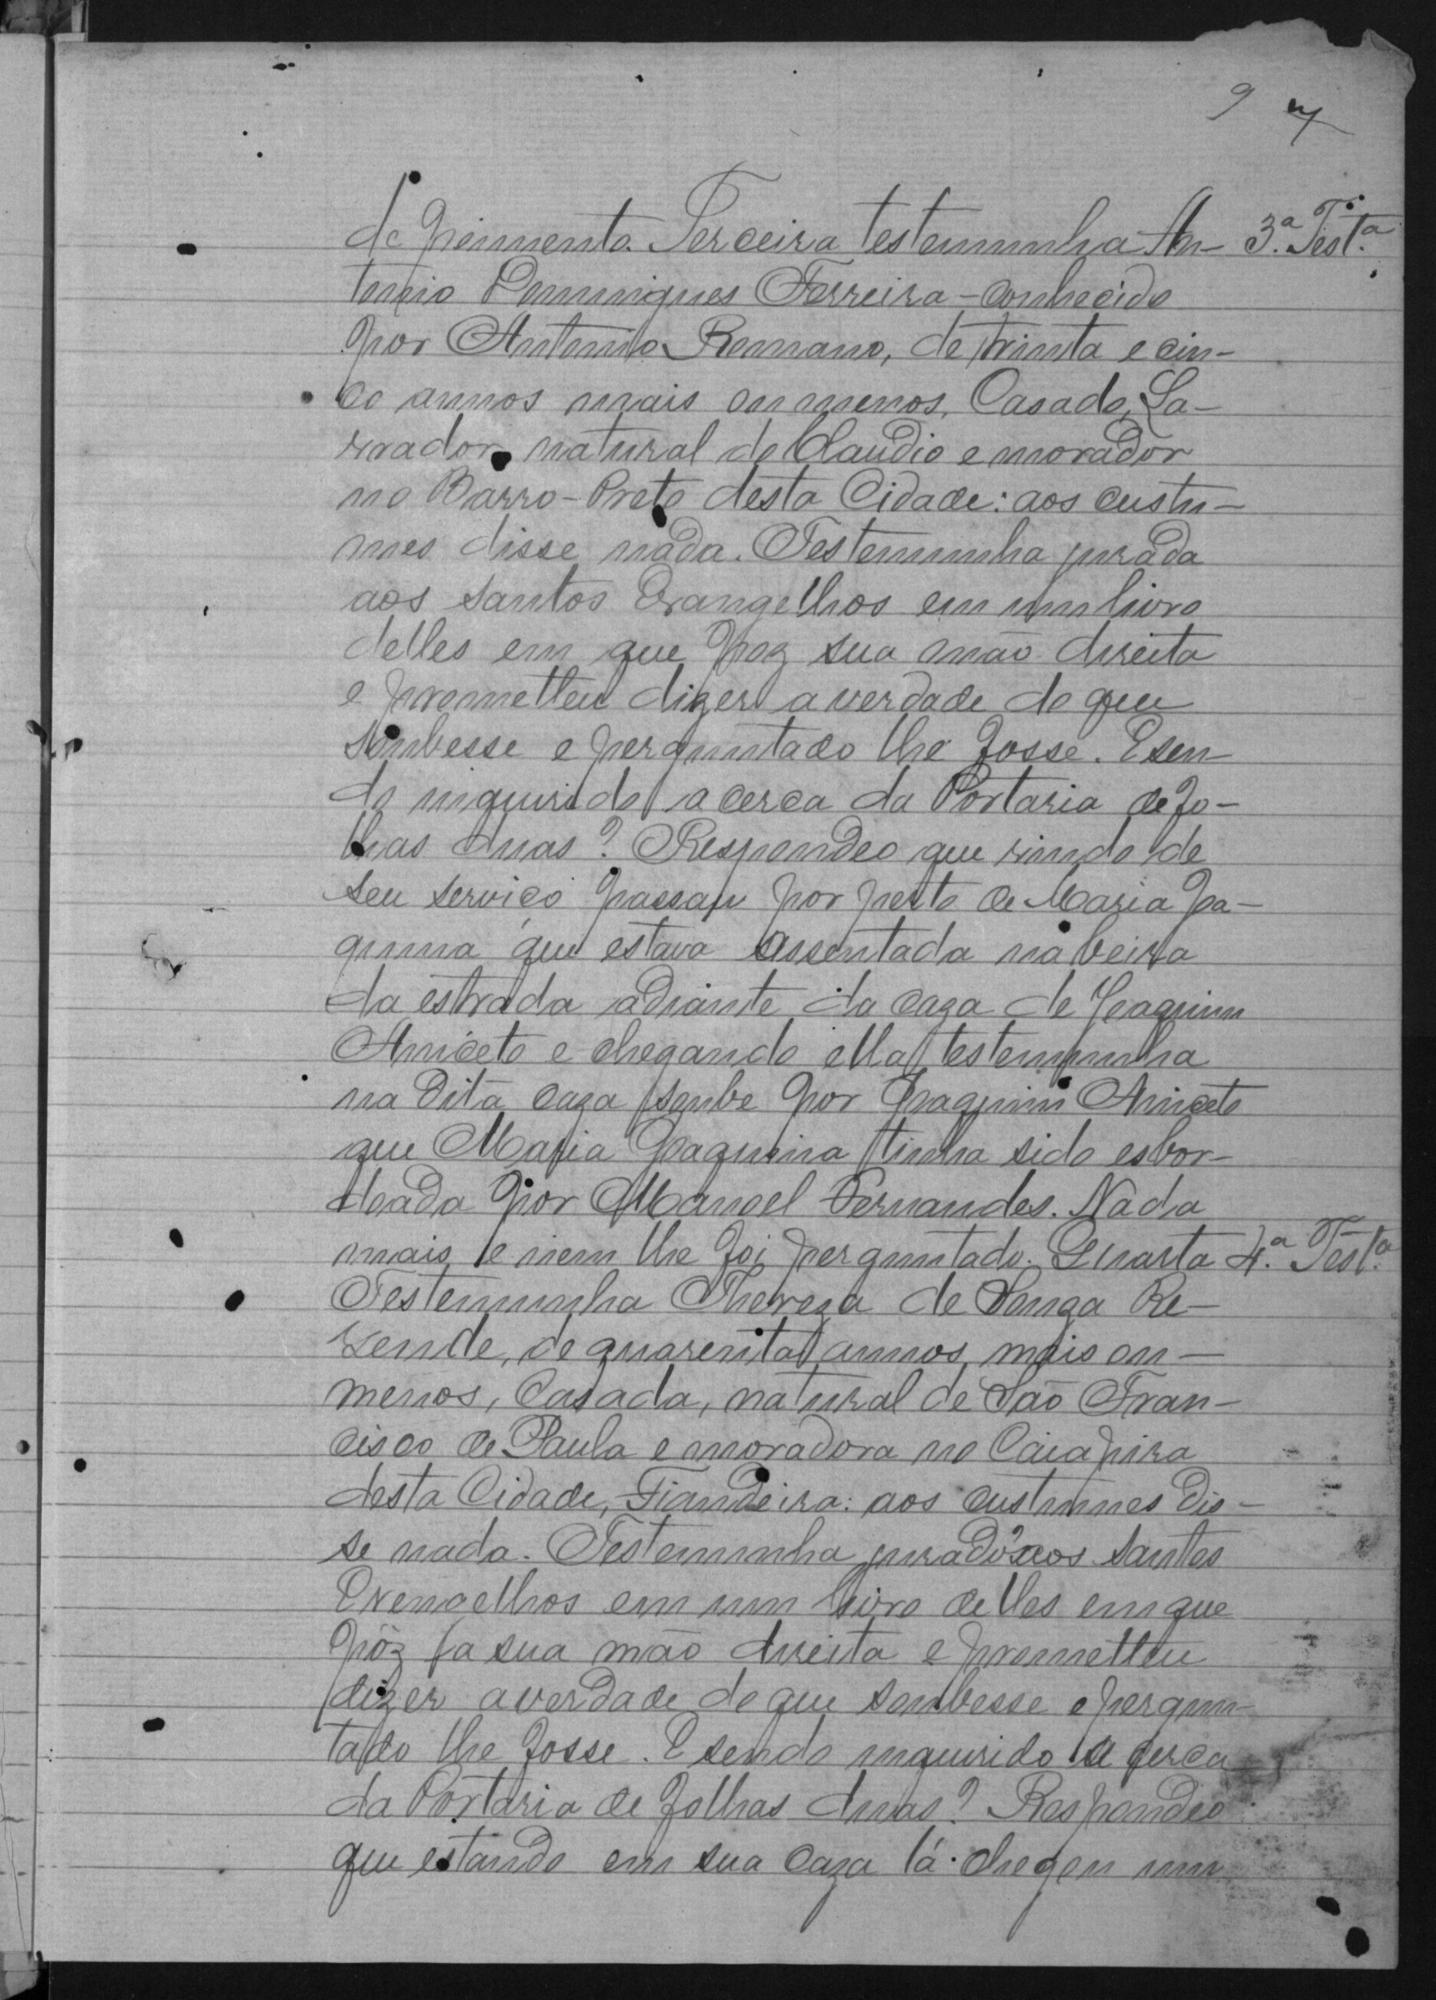 9
depoimento. Terceira testemunha An- 3.ª Test.ª
tonio Domingues Ferreira - conhecido
por Antonio Romano, de trinta e cin-
co annos mais ou menos, Casado, La-
vrador, natural do Claudio e morador
no Barro-Preto desta Cidade: aos custu-
mes disse nada. Testemunha jurada
aos santos Evangelhos em um livro
delles em que poz sua mão direita
e prometteu dizer a verdade do que
soubesse e perguntado lhe fosse. E sen-
do inquirido a cerca da Portaria de fo-
lhas duas? Respondeo que vindo de
seu serviço passou por perto de Maria Joa-
quina que estava assentada na beira
da estrada adiante da caza de Joaquim
Aniceto e chegando ella testemunha
na dita caza soube por Joaquim Aniceto
que Maria Joaquina tinha sido esbor-
doada por Manoel Fernandes. Nada
mais e nem lhe foi perguntado. Quarta 4.ª Test.ª
Testemunha Thereza de Souza Re-
zende, de quarenta annos mais ou -
menos, Casada, natural de São Fran-
cisco de Paula e moradora no Caiapira
desta Cidade, Fiandeira: aos custumes dis-
se nada. Testemunha jurado aos santos
Evengelhos em um livro delles em que
pôz a sua mão direita e prometteu
dizer a verdade do que soubesse e pergun-
tado lhe fosse. E sendo inquirido a cerca
da Portaria de folhas duas? Respondeo
que estando em sua caza lá chegou um